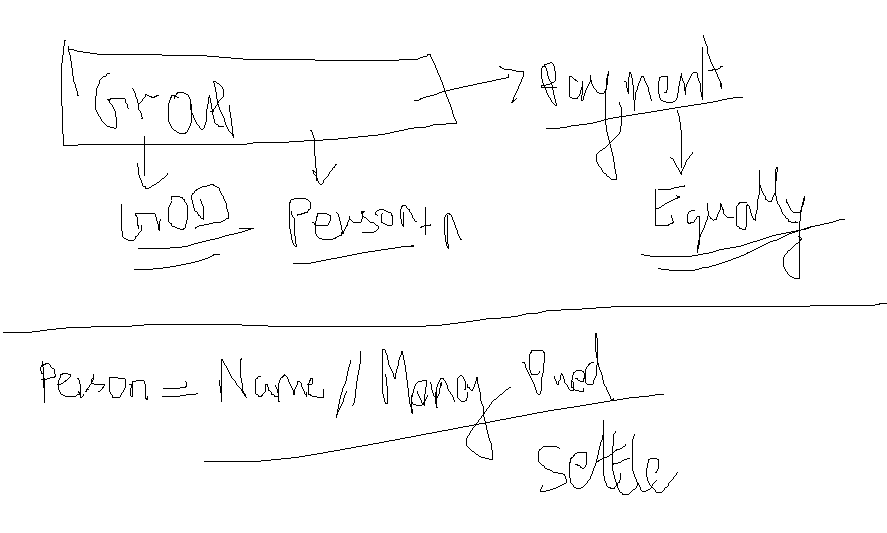 Group Payment
GOD Person+n Equally
Person = Name // Money Owed
Settle